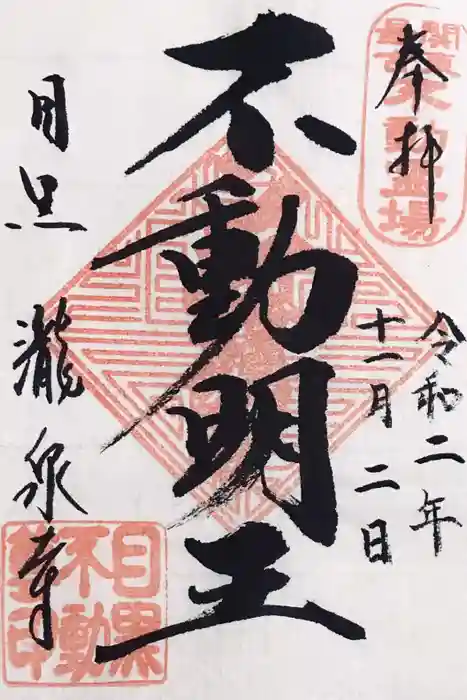 奉拝
関東最古不動霊場
令和二年
十一月二日
不動明王
目黒
瀧泉寺
目黒
不動